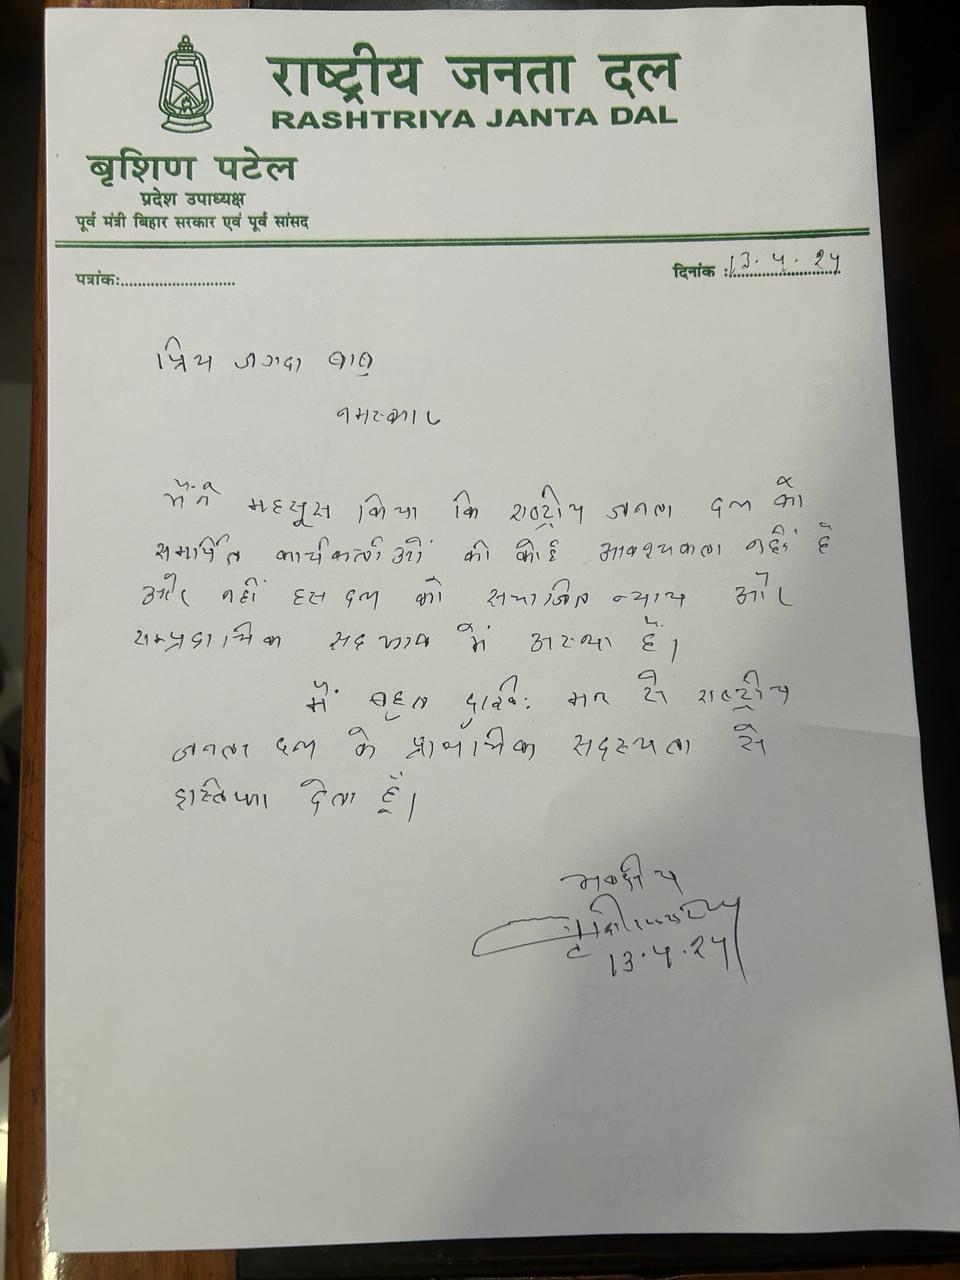 राष्ट्रीय जनता दल
RASHTRIYA JANTA DAL
बृशिण पटेल
प्रदेश उपाध्यक्ष
पूर्व मंत्री बिहार सरकार एवं पूर्व सांसद
पत्रांक:............................
दिनांक :13.4.24
प्रिय जगदा बाबु
नमस्कार
मैंने महसूस किया कि राष्ट्रीय जनता दल को
समर्पित कार्यकर्ताओं की कोई आवश्यकता नहीं है
और नहीं इस दल को समाजिक न्याय और
सम्प्रदायिक सदभाव में अस्था है।
मैं बहुत दुखि: मन से राष्ट्रीय
जनता दल के प्राथमिक सदस्यता से
इस्तिफा देता हूँ।
भवदीय
13.4.24